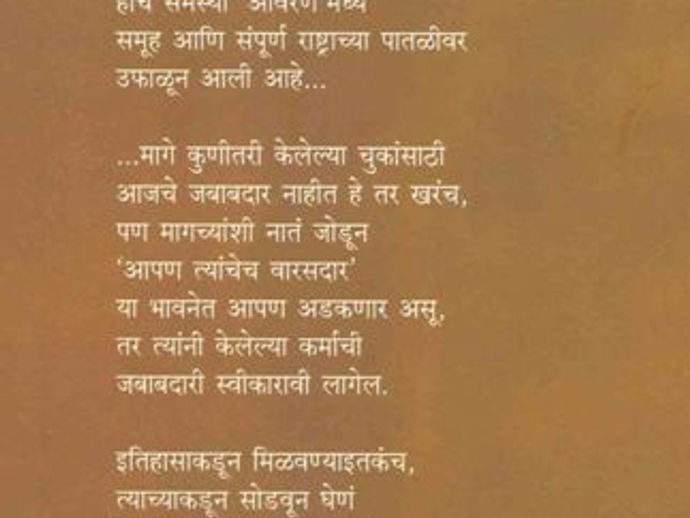 हीच समस्या 'आवरण'मध्ये
समूह आणि संपूर्ण राष्ट्राच्या पातळीवर
उफाळून आली आहे...
...मागे कुणीतरी केलेल्या चुकांसाठी
आजचे जबाबदार नाहीत हे तर खरंच,
पण मागच्यांशी नातं जोडून
'आपण त्यांचेच वारसदार'
या भावनेत आपण अडकणार असू,
तर त्यांनी केलेल्या कर्माची
जबाबदारी स्वीकारावी लागेल.
इतिहासाकडून मिळवण्याइतकंच,
त्याच्याकडून सोडवून घेणं